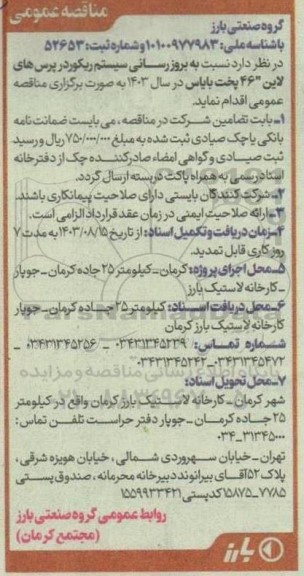 مناقصه عمومی
گروه صنعتی بارز
باشناسه ملی: ۱۰۱۰۰۹۷۷۹۸۳ و شماره ثبت: ۵۲۶۵۳
در نظر دارد نسبت به بروز رسانی سیستم ریکوردر پرس های
لاین "۴۶ پخت بایاس در سال ۱۴۰۳ به صورت برگزاری مناقصه
عمومی اقدام نماید.
۱- بابت تضامین شرکت در مناقصه، می بایست ضمانت نامه
بانکی یا چک صیادی ثبت شده به مبلغ ۷۵۰/۰۰۰/۰۰۰ ریال و رسید
ثبت صیادی و گواهی امضاء صادرکننده چک از دفترخانه
اسناد رسمی به همراه پاکت دربسته ارسال گردد.
۲- شرکت کنندگان بایستی دارای صلاحیت پیمانکاری باشند.
۳- ارائه صلاحیت ایمنی در زمان عقد قرارداد الزامی است.
۴- زمان دریافت و تکمیل اسناد: از تاریخ ۱۴۰۳/۰۸/۱۵ به مدت ۷
روز کاری قابل تمدید.
۵- محل اجرای پروژه: کرمان - کیلومتر ۲۵ جاده کرمان - جوپار
- کارخانه لاستیک بارز
۶- محل دریافت اسناد: کیلومتر ۲۵ جاده کرمان - جوپار
کارخانه لاستیک بارز کرمان
شماره تماس: ۰۳۴۳۱۳۴۵۲۳۹ - ۰۳۴۳۱۳۴۵۲۵۶ -
۰۳۴۳۱۳۴۵۲۴۲-۰۳۴۳۱۳۴۵۴۷۲
۷- محل تحویل اسناد:
شهر کرمان - کارخانه لاستیک بارز کرمان واقع در کیلومتر
۲۵ جاده کرمان - جوپار دفتر حراست تلفن تماس:
۰۳۴-۳۱۳۴۵۰۰۰
تهران - خیابان سهروردی شمالی، خیابان هویزه شرقی،
پلاک ۵۲ آقای بیرانوند دبیرخانه محرمانه، صندوق پستی
۷۷۸۵-۱۵۸۷۵ کدپستی ۱۵۵۹۹۳۳۴۲۱
روابط عمومی گروه صنعتی بارز
(مجتمع کرمان)
بارز